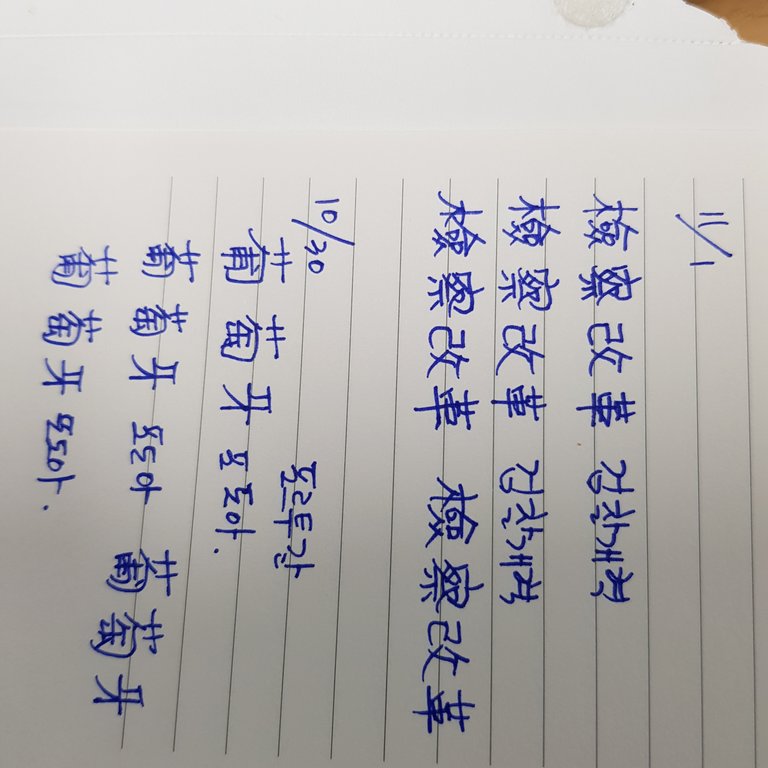 11/1
檢察改革 검찰개혁
檢察改革 검찰개혁
檢察改革 檢察改革
10/30
포르투갈
葡萄牙 포도아.
葡萄牙 포도아 葡萄牙
葡萄牙 포도아.